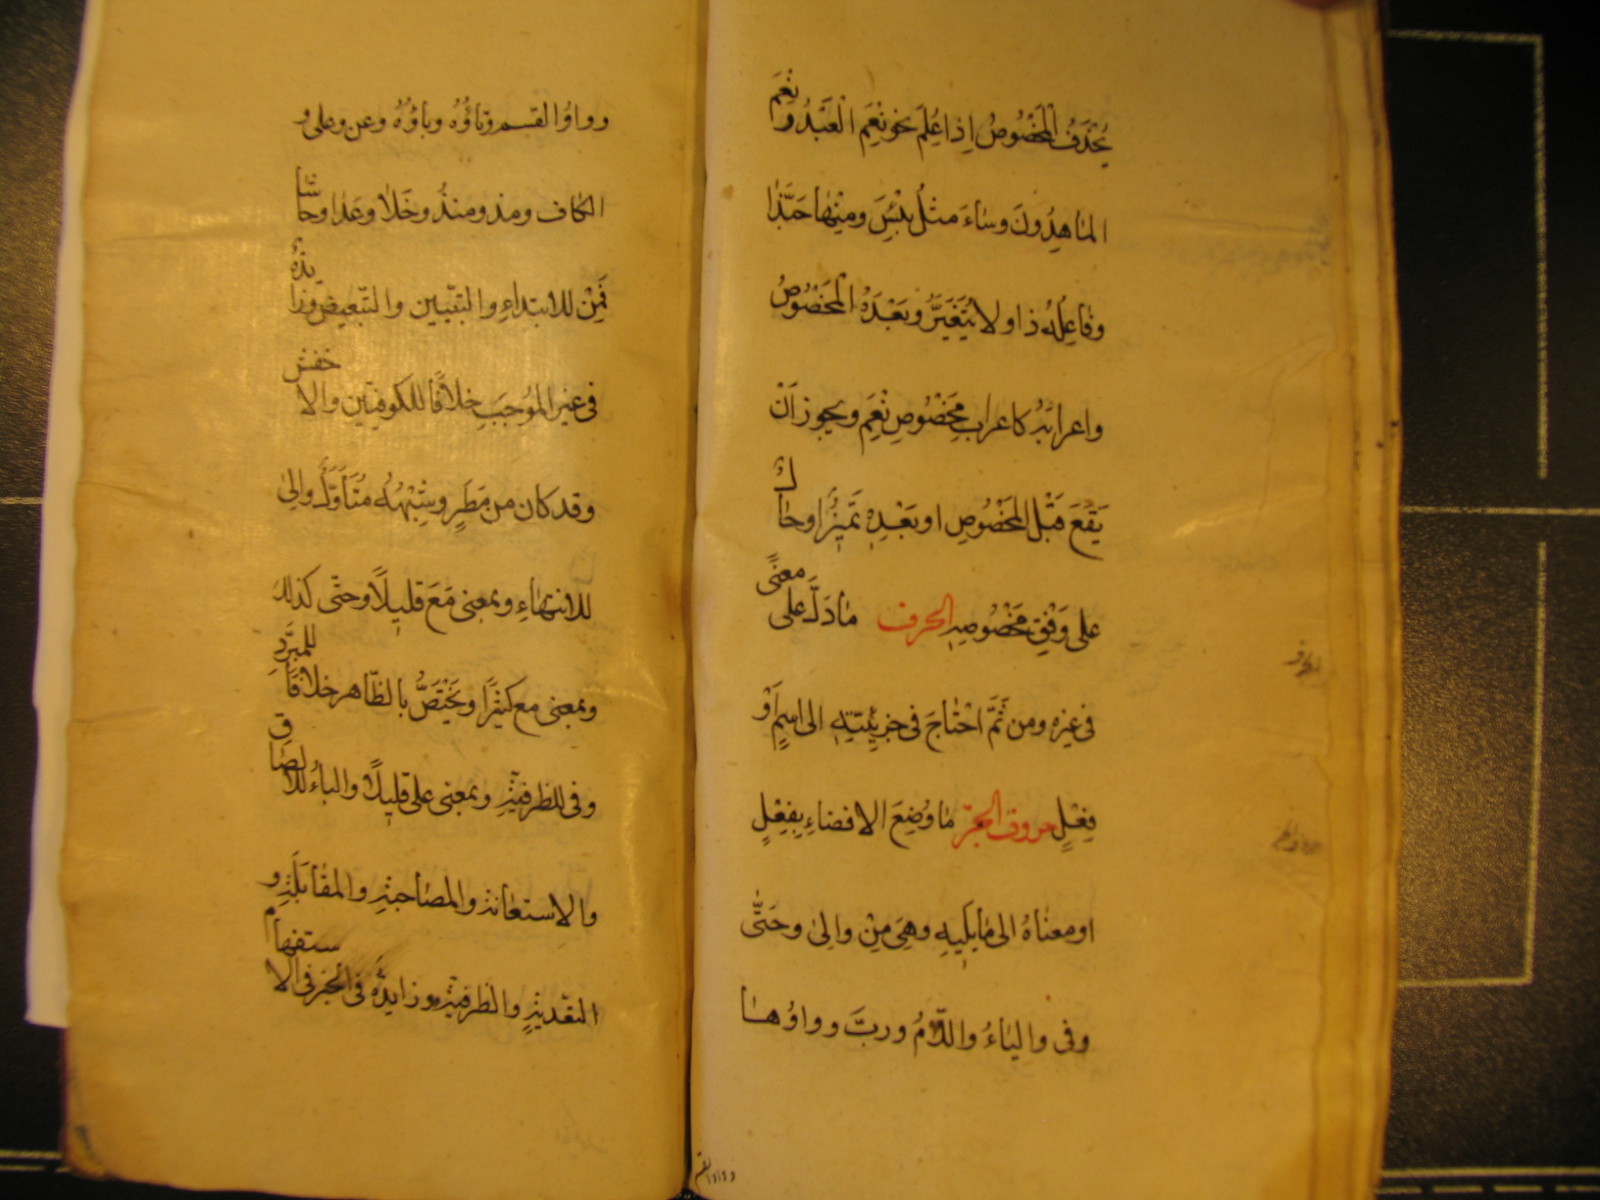 يُحْذَفُ المَخْصُوصُ اِذا عُلِمَ نحو نِعْمَ الْعَبْدُ وَنِعْمَ
المٰاهِدُونَ وسٰاءَ مثلُ بِئْسَ ومِنْهٰا حَبَّذٰا
وفٰاعِلُه ذا ولا يَتَغَيَّرُ وبَعْدَهُ المَخْصُوصُ
واعرابُهُ كاعراب مَخْصُوصِ نِعْمَ ويجوز اَنْ
يَقَعَ قَبْلَ المَخْصُوصِ او بَعْدِهِ تَمييزًا وحٰالٌ
على وَفْقِ مَخْصُوصِهِ الحرف مٰا دَلَّ على معنًى
فى غيره ومن ثَمَّ احْتٰاجَ فى جزئِيَّتِهِ الى اسمٍ اَوْ
فِعْلٍ حروف الجرّ مٰا وُضِعَ الافضاءِ بِفِعْلٍ
او معنٰاهُ الى مٰا يَلِيهِ وهِىَ مِنْ والىٰ وحَتّٰى
وفى والبٰاءُ واللّامُ وربَّ وواوُهٰا
وواوُ القسم
وواوُ القسم وتٰاؤُهُ وبٰاؤُهُ وعن وعلى و
الكاف ومذ ومنذُ وخَلٰا وعَدٰا وحٰاشٰا
فَمِنْ للابتداءِ والتبيين والتّبعيض وزائدةٌ
فى غير المُوجَبِ خلافًا للكوفيّين والاخفش
وقد كان من مَطَرٍ وشِبْهُهُ مُتَأَوَّلٌ والىٰ
للانتهٰاءِ وبمعنى مَعَ قليلًا وحتّى كذلك
وبمعنى مع كثيرًا ويَخْتَصُّ بالظّاهر خلافًا للمبرَّدِ
وفى للظرفيّةِ وبمعنى على قليلًا والباءُ للالصٰاق
والاستعٰانة والمصٰاحبة والمقٰابَلَةِ و
التعدية والظرفيّة وزايدةٌ فى الخبر فى الاستفهام